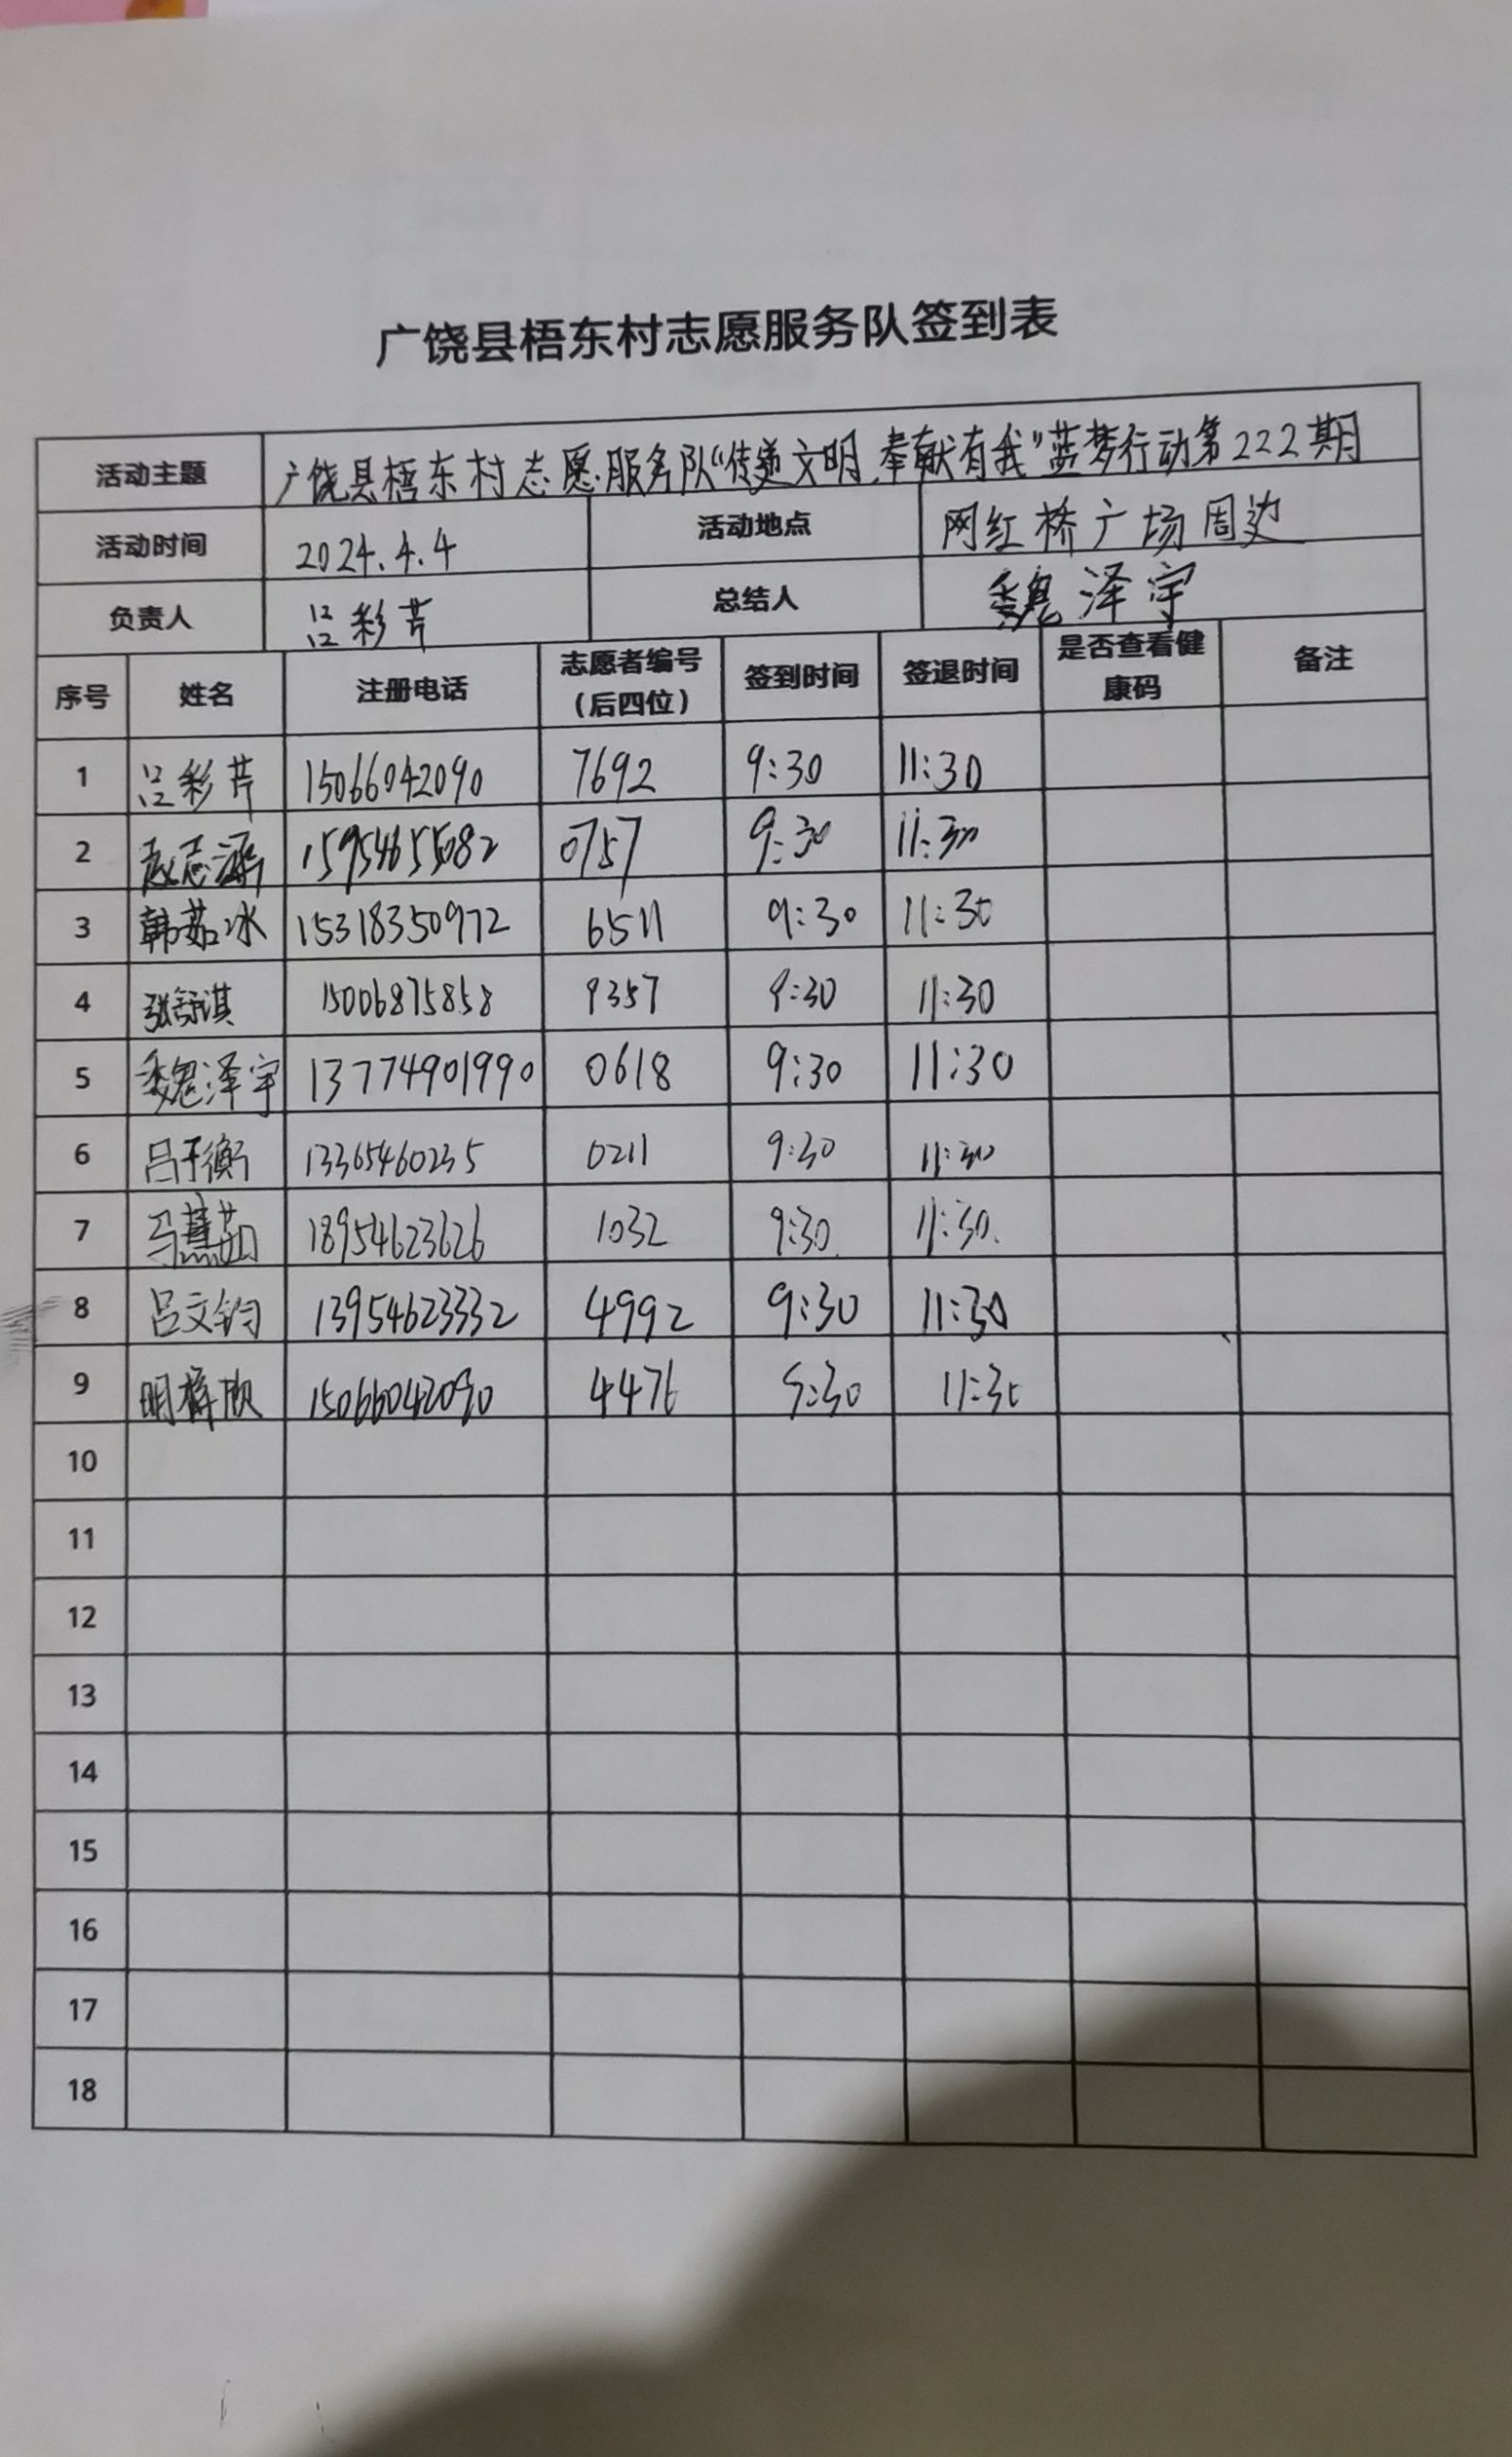 广饶县梧东村志愿服务队签到表
活动主题 广饶县梧东村志愿服务队“传递文明.奉献有我”蓝梦行动第222期
活动时间 2024.4.4 活动地点 网红桥广场周边
负责人 吕彩芹 总结人 魏泽宇
序号 姓名 注册电话 志愿者编号（后四位） 签到时间 签退时间 是否查看健康码 备注
1 吕彩芹 15066042090 7692 9:30 11:30
2 赵志涵 15954655082 0757 9:30 11:30
3 韩茹冰 15318350972 6511 9:30 11:30
4 15006875858 9357 9:30 11:30
5 魏泽宇 13774901990 0618 9:30 11:30
6 吕于衡 13365460235 0211 9:30 11:30
7 马慧茹 18954623626 1032 9:30 11:30
8 吕文钧 13954623332 4992 9:30 11:30
9 明梓欣 15066042090 4476 9:30 11:30
10
11
12
13
14
15
16
17
18